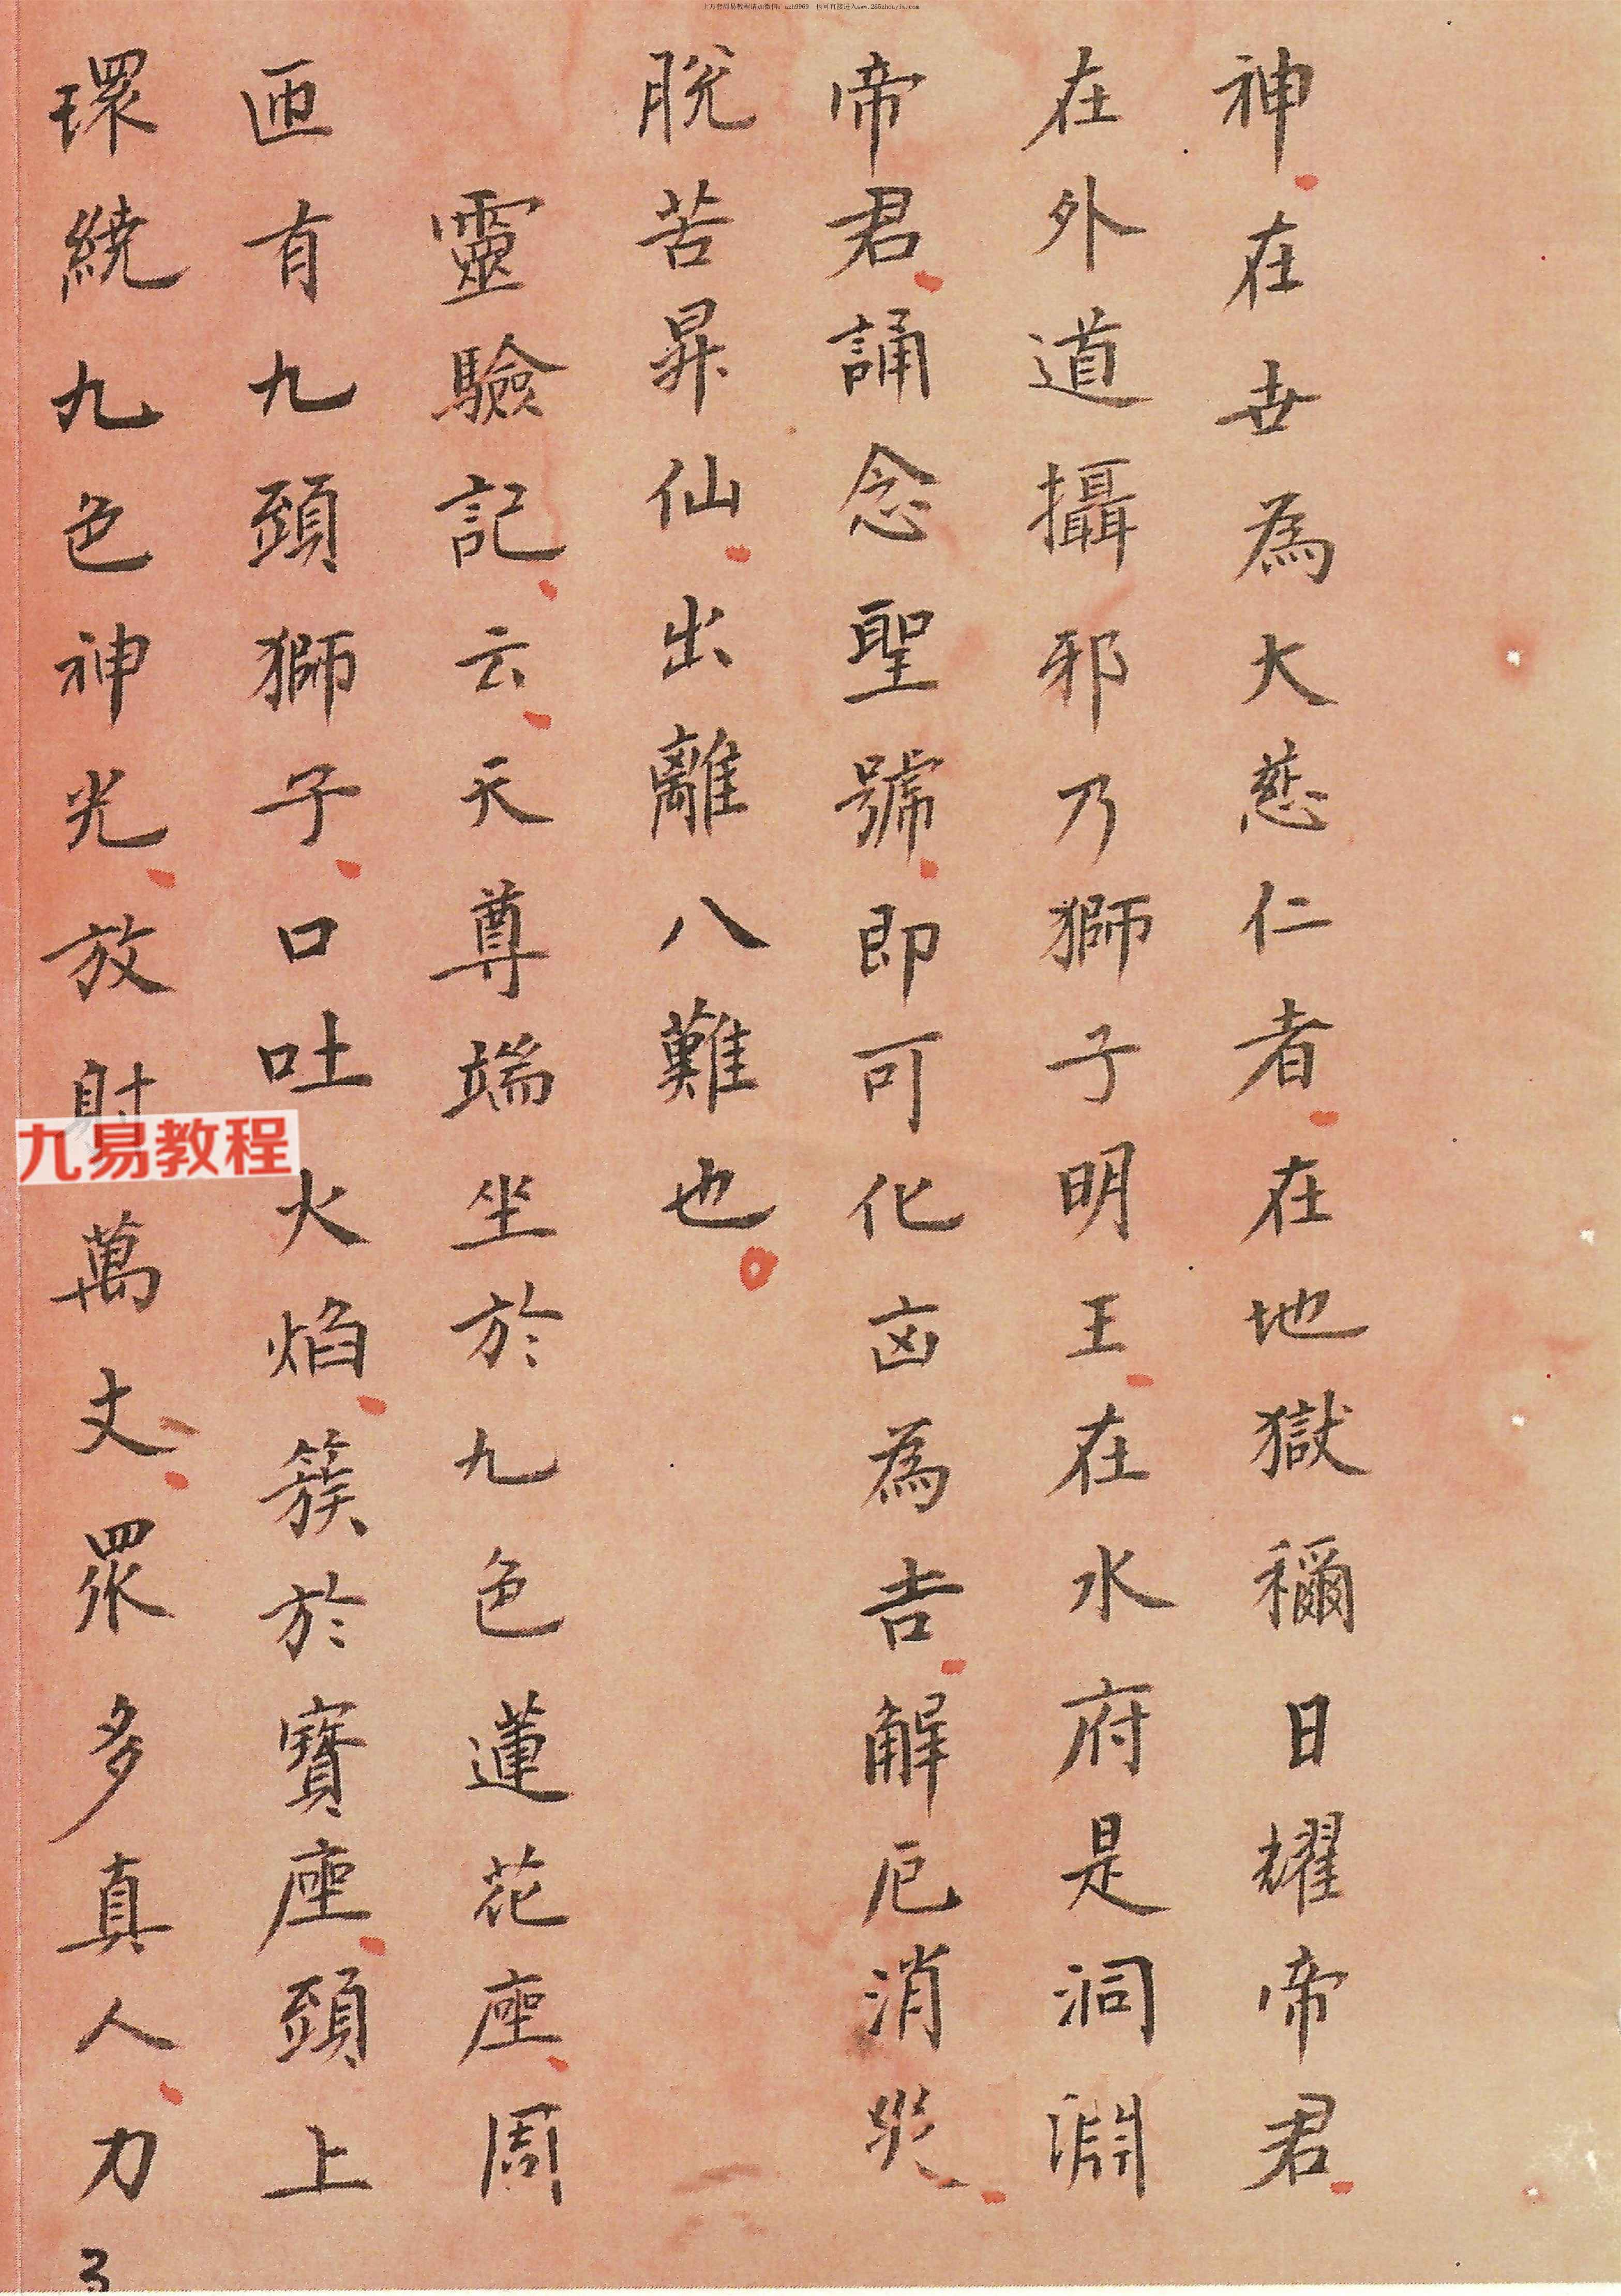 上万套周易教程请加微信：uzh9969 也可直接进入www.265zhouyiw.com
神在世為大慈仁者在地獄稱日耀帝君
在外道攝邪乃獅子明王在水府是洞淵
帝君誦念聖號即可化凶為吉解厄消災
脫苦昇仙出離八難也
靈驗記云天尊端坐於九色蓮花座周
匝有九頭獅子口吐火焰簇於寶座頭上
環繞九色神光放射萬丈眾多真人力
3
九易教程